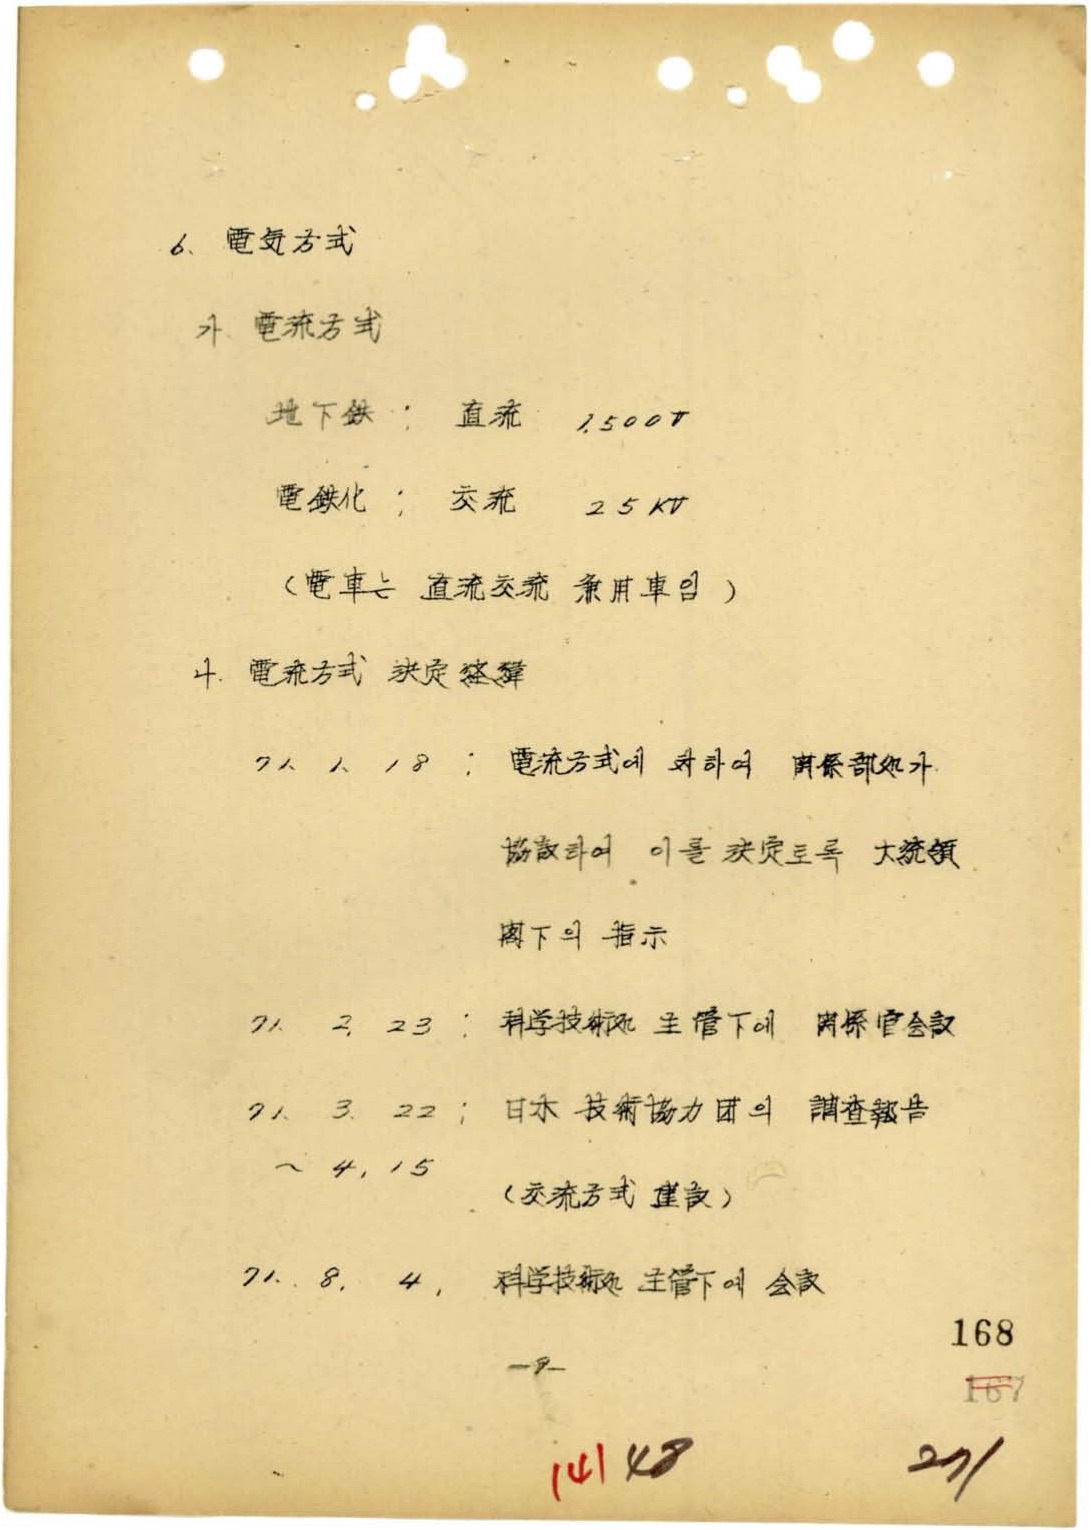 6. 電気方式
가. 電流方式
地下鉄 ; 直流 1,500V
電鉄化 ; 交流 25KV
(電車는 直流交流 兼用車임)
나. 電流方式 決定経緯
71. 1. 18 ; 電流方式에 対하여 関係部処가
協議하여 이를 決定토록 大統領
閣下의 指示
71. 2. 23 ; 科学技術処 主管下에 関係官会議
71. 3. 22 ; 日本 技術協力団의 調査報告
~ 4. 15
(交流方式 建議)
71. 8. 4. 科学技術処 主管下에 会議
168
167
141 48 271